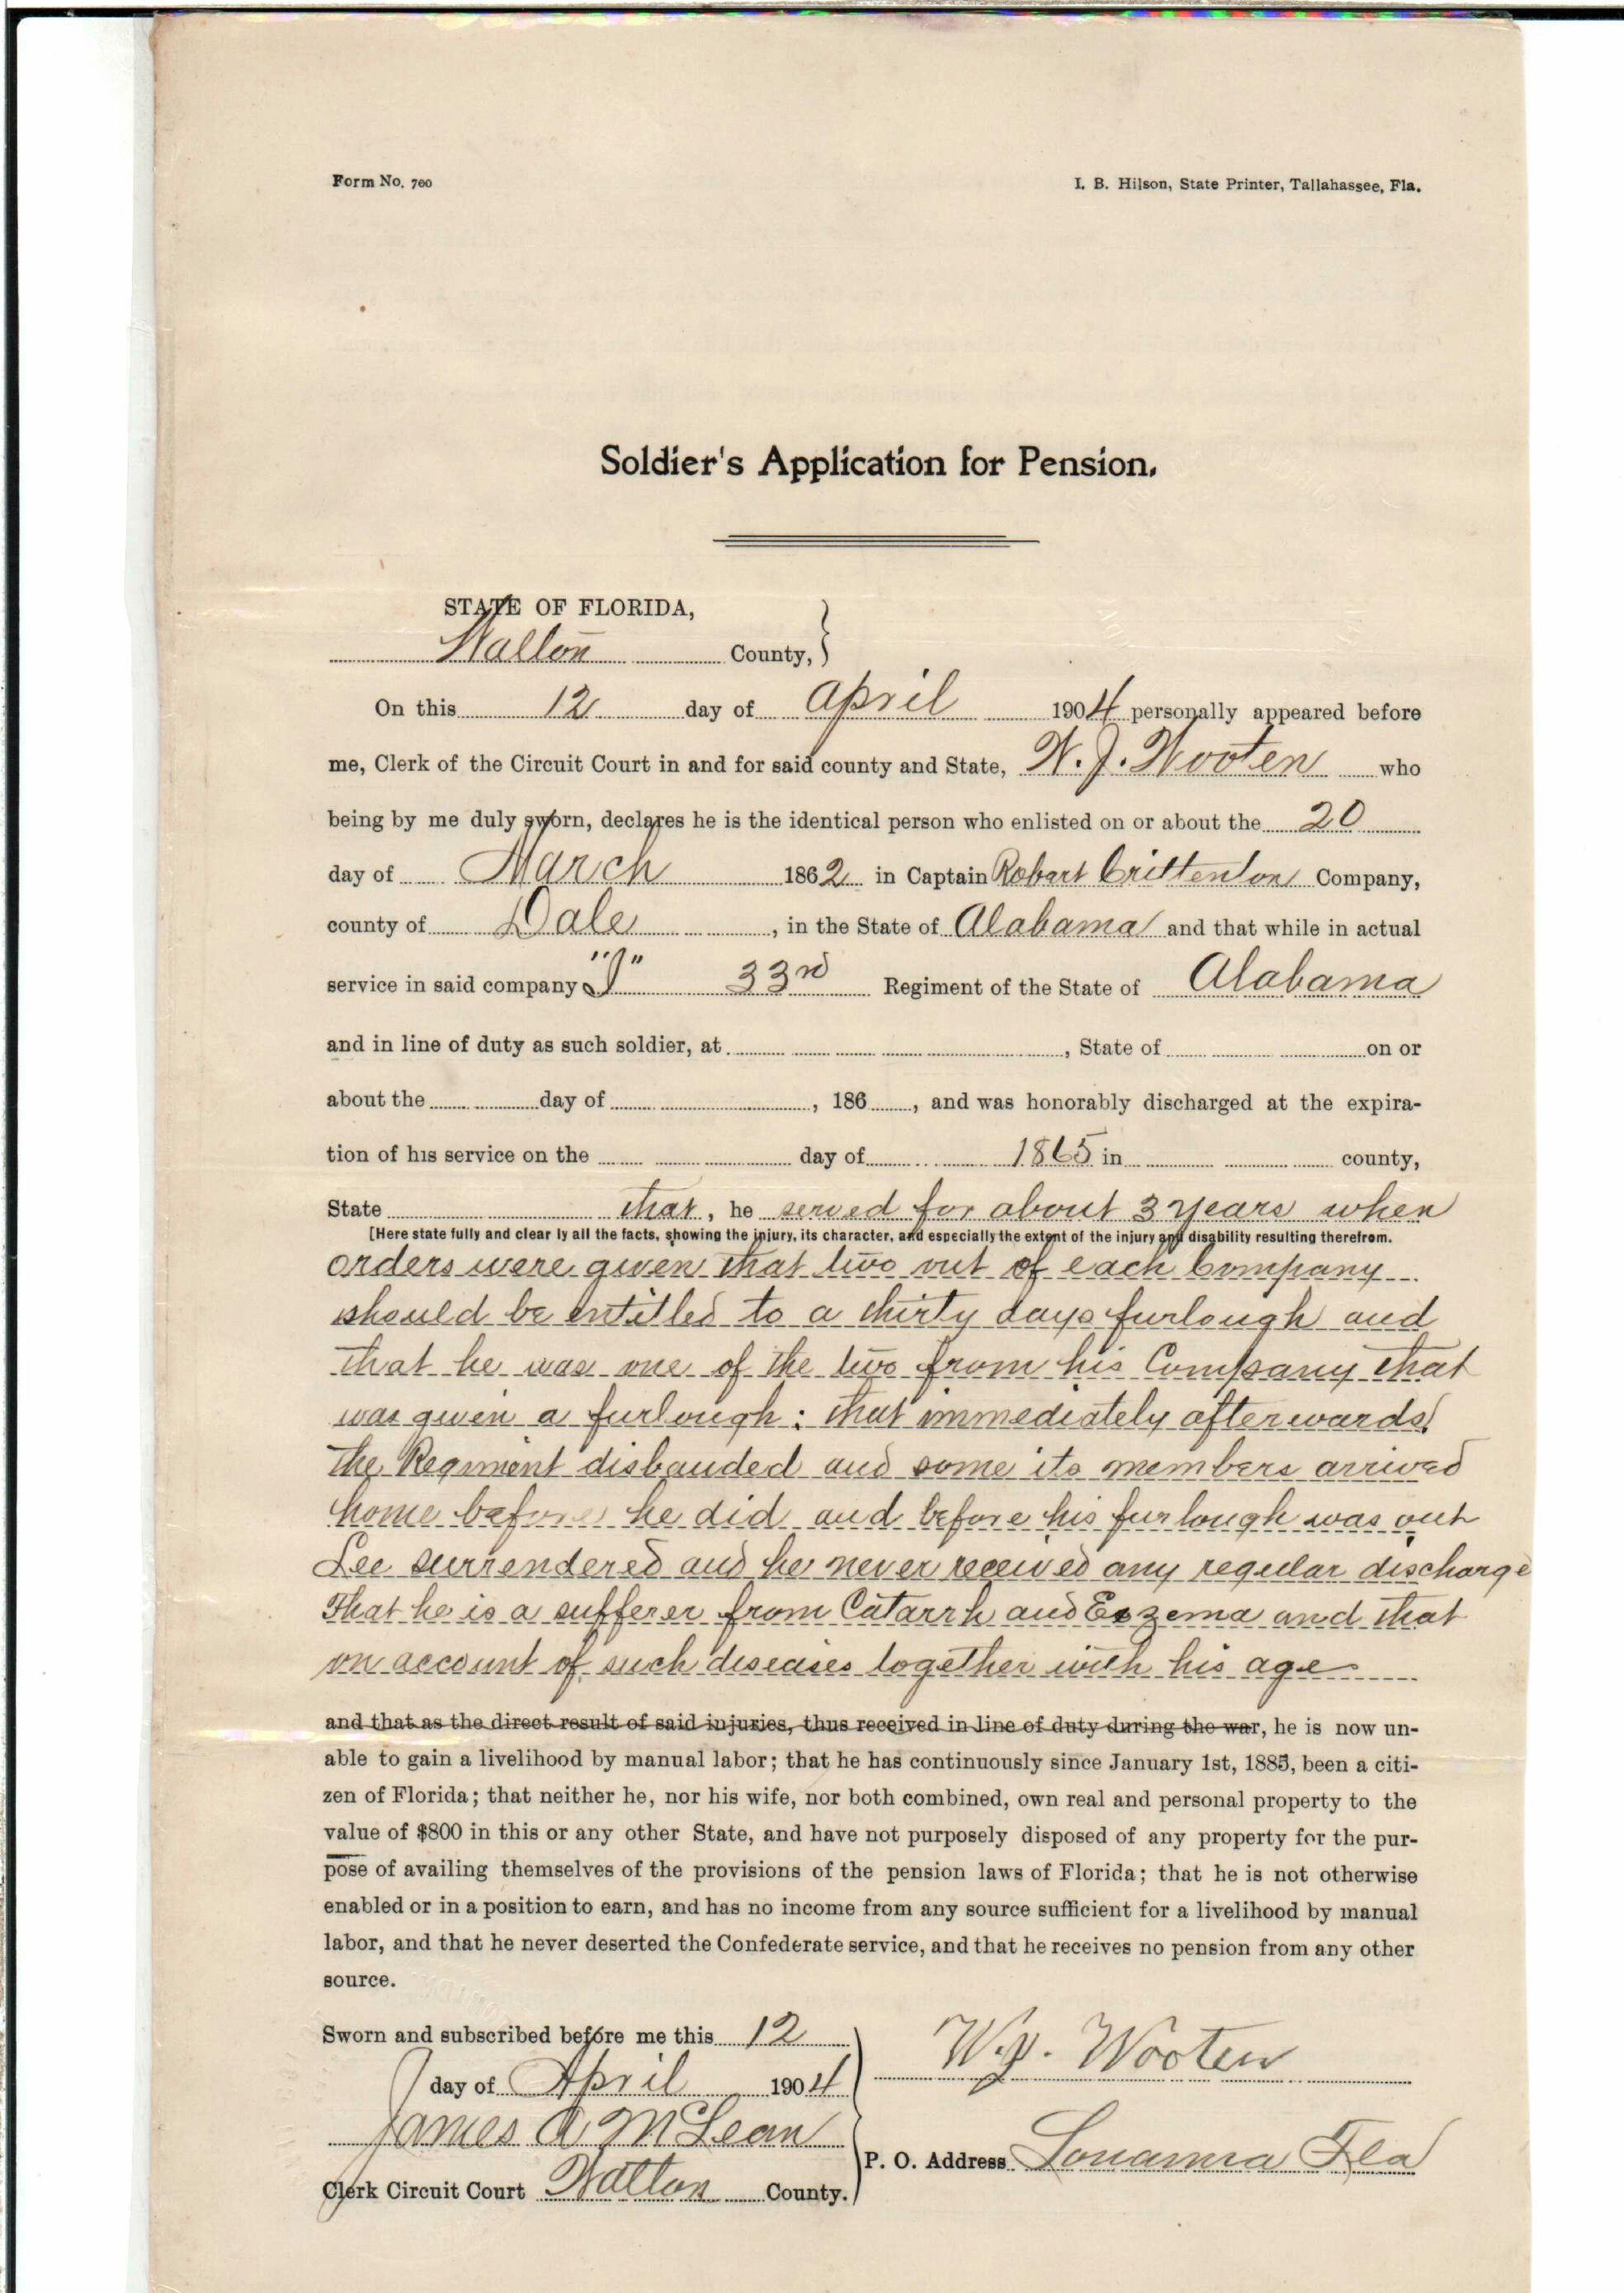 Form No. 700
I. B. Hilson, State Printer, Tallahassee, Fla.
Soldier's Application for Pension.
STATE OF FLORIDA,
Walton County,
On this 12 day of April 1904 personally appeared before
me, Clerk of the Circuit Court in and for said county and State, W. J. Wooten who
being by me duly sworn, declares he is the identical person who enlisted on or about the 20
day of March 1862 in Captain Robert Crittenton Company,
county of Dale, in the State of Alabama and that while in actual
service in said company "I" 33rd Regiment of the State of Alabama
and in line of duty as such soldier, at , State of on or
about the day of , 186 , and was honorably discharged at the expira-
tion of his service on the day of 1865 in county,
State that, he served for about 3 years when
[Here state fully and clear ly all the facts, showing the injury, its character, and especially the extent of the injury and disability resulting therefrom.
orders were given that two out of each Company
should be entitled to a thirty days furlough and
that he was one of the two from his Company that
was given a furlough: that immediately afterwards
the Regiment disbanded and some its members arrived
home before he did and before his furlough was out
Lee surrendered and he never received any regular discharge
That he is a sufferer from Catarrh and Eczema and that
on account of such diseases together with his age
and that as the direct result of said injuries, thus received in line of duty during the war, he is now un-
able to gain a livelihood by manual labor; that he has continuously since January 1st, 1885, been a citi-
zen of Florida; that neither he, nor his wife, nor both combined, own real and personal property to the
value of $800 in this or any other State, and have not purposely disposed of any property for the pur-
pose of availing themselves of the provisions of the pension laws of Florida; that he is not otherwise
enabled or in a position to earn, and has no income from any source sufficient for a livelihood by manual
labor, and that he never deserted the Confederate service, and that he receives no pension from any other
source.
Sworn and subscribed before me this 12
day of April 1904
W. J. Wooten
James A McLean
P. O. Address Fla
Clerk Circuit Court Walton County.